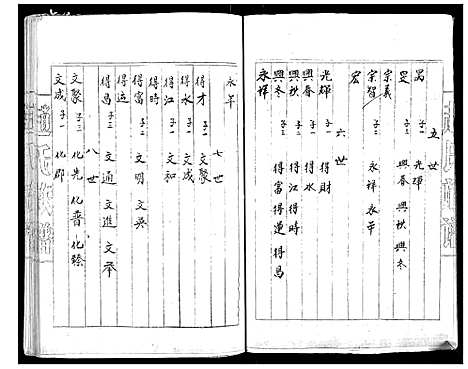 五世
昌 子一 光輝
旻 子三 興春 興秋 興冬
宗義
宗智 子二 永祥 永年
宏
六世
光輝 子一 得財
興春 子一 得水
興秋 子二 得江 得時
興冬 子三 得富 得運 得昌
永祥
永年
七世
得才 子一 文聚
得水 子一 文成
得江 子一 文和
得時
得富 子二 文明 文英
得運
得昌 子三 文通 文進 文举
八世
文聚 子三 化先 化普 化臻
文成 子一 化郡